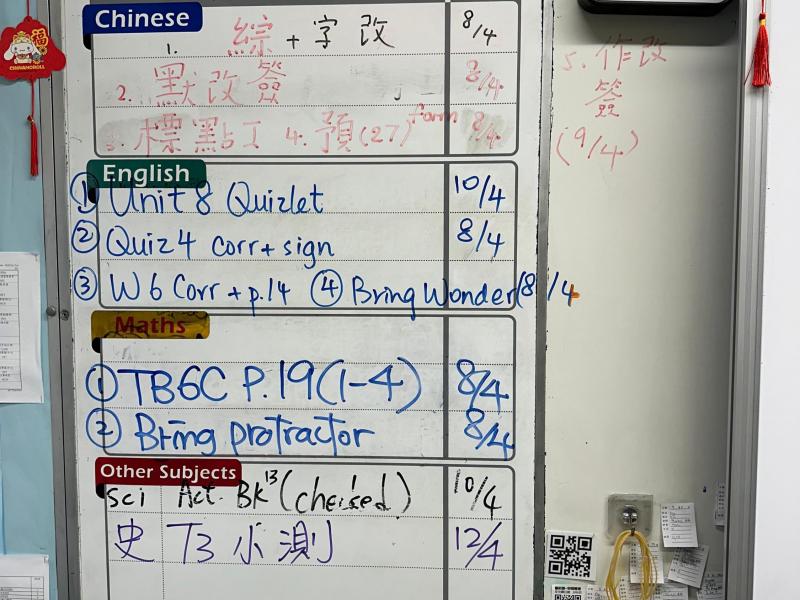 Chinese
1. 綜 + 字 改 8/4
2. 默改簽 8/4
3. 標點工 4. 預(27) form 8/4
5. 作改
簽
(9/4)
English
① Unit 8 Quizlet 10/4
② Quiz 4 corr + sign 8/4
③ W6 Corr + p.14 ④ Bring Wonder (8/4
Maths
① TB6C P.19(1-4) 8/4
② Bring protractor 8/4
Other Subjects
sci Act. BK 13 10/4
史 T3 小測 12/4
福